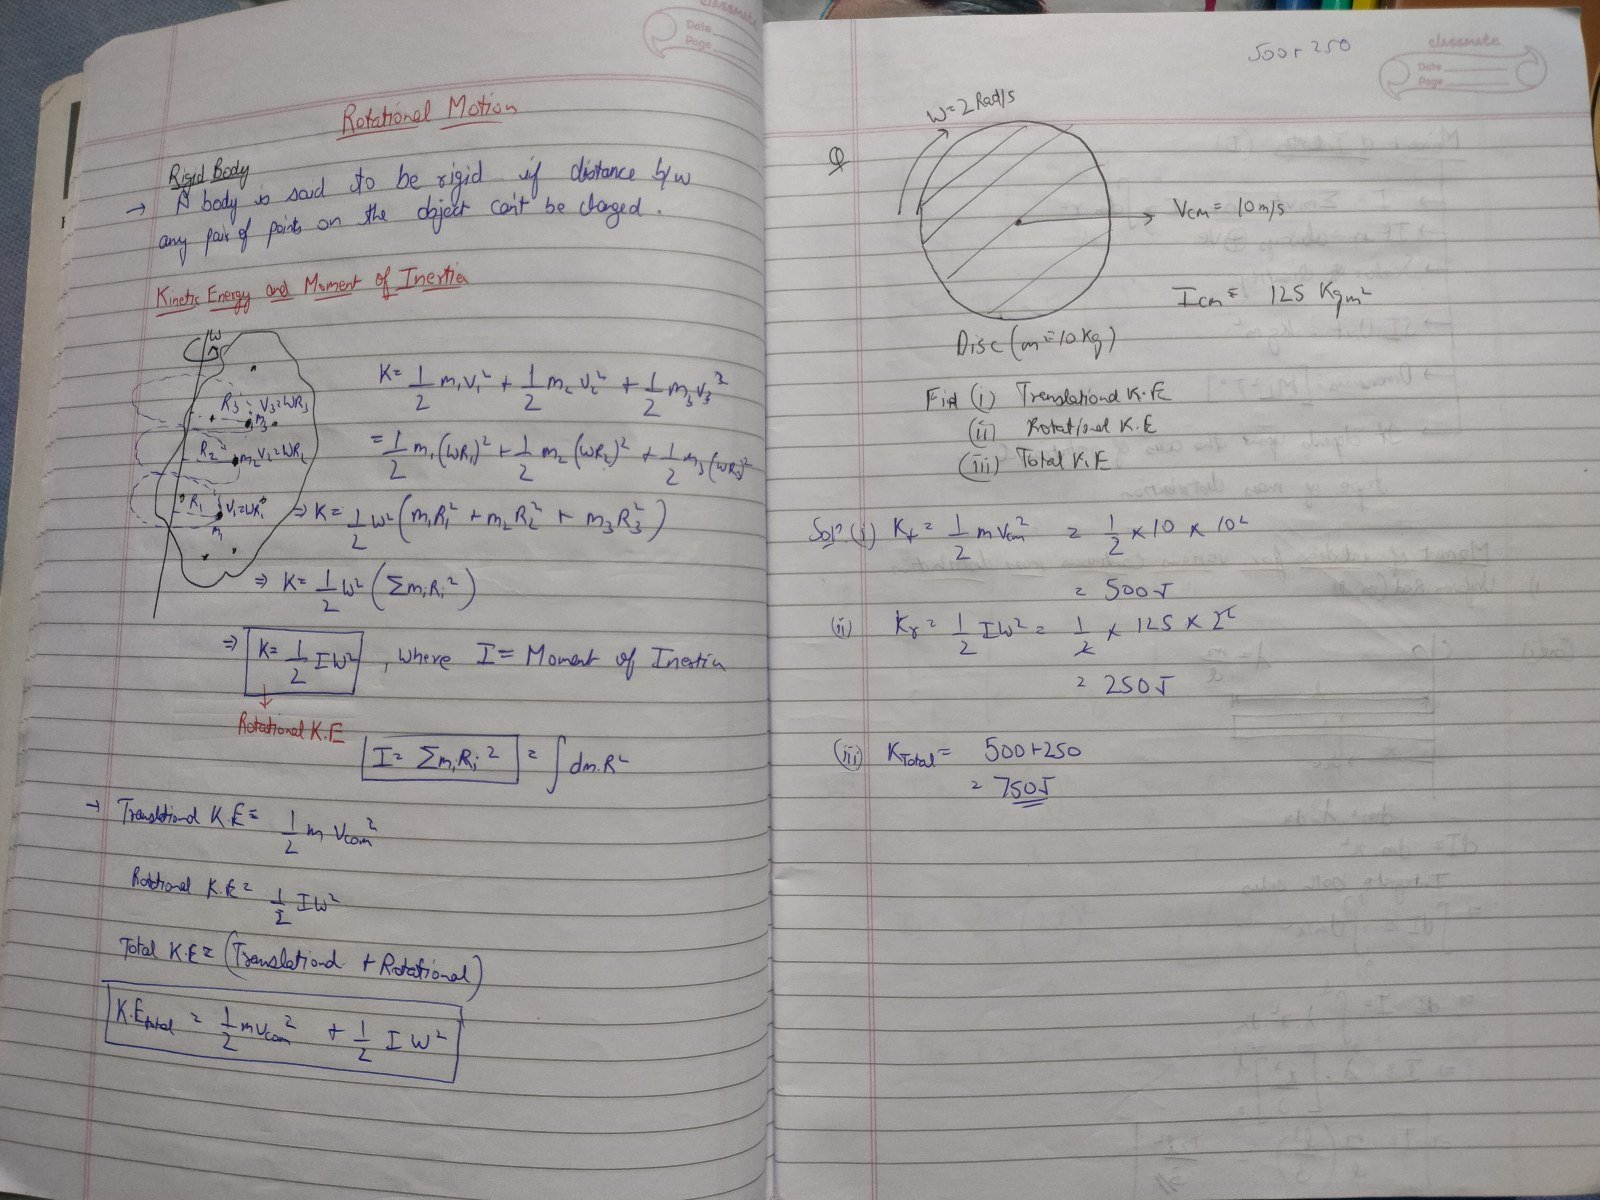 classmate
Date
Page
Rotational Motion
Rigid Body
→ A body is said to be rigid if distance b/w
any pair of points on the object can't be changed.
Kinetic Energy and Moment of Inertia
W
R3 V3=WR3
m3
R2 m2 V2=WR2
R1 V1=WR1
m1
K = 1/2 m1v1² + 1/2 m2v2² + 1/2 m3v3²
= 1/2 m1(WR1)² + 1/2 m2(WR2)² + 1/2 m3(WR3)²
⇒ K = 1/2 W² (m1R1² + m2R2² + m3R3²)
⇒ K = 1/2 W² (Σ miRi²)
⇒ K = 1/2 IW² , where I = Moment of Inertia
↓
Rotational K.E
I = Σ miRi² = ∫ dm.R²
→ Translational K.E = 1/2 m Vcom²
Rotational K.E = 1/2 IW²
Total K.E = (Translational + Rotational)
K.Etotal = 1/2 mvcom² + 1/2 I W²
500+250
classmate
Date
Page
W=2 Rad/s
Q
Vcm = 10m/s
Icm = 125 Kgm²
Disc (m=10Kg)
Find (i) Translational K.E
(ii) Rotational K.E
(iii) Total K.E
Solⁿ. (i) Kt = 1/2 mVcm² = 1/2 × 10 × 10²
= 500J
(ii) Kr = 1/2 IW² = 1/2 × 125 × 2²
= 250J
(iii) KTotal = 500+250
= 750J